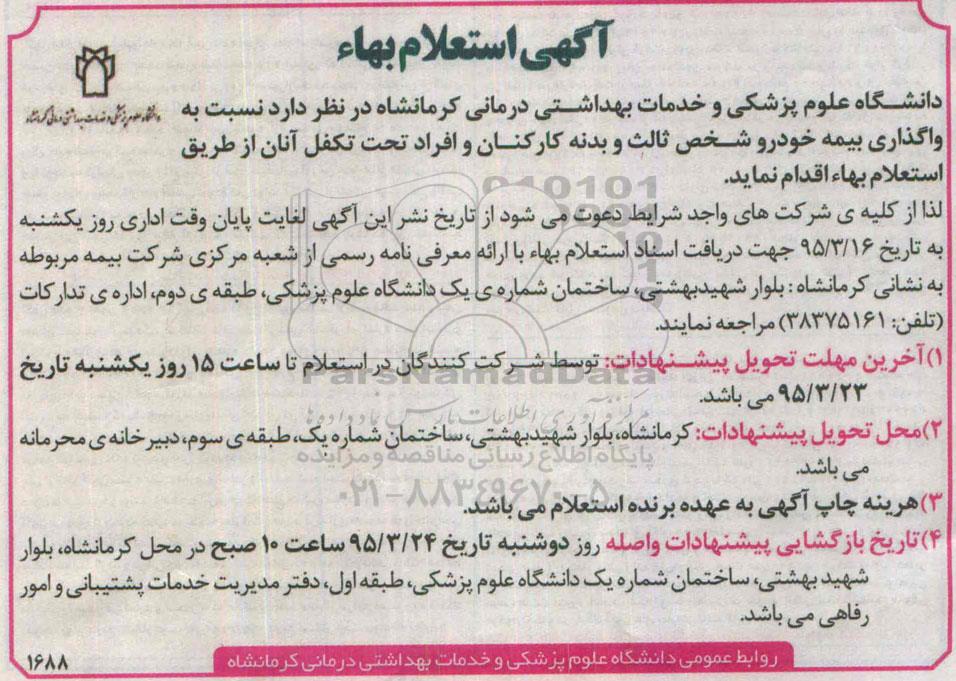 آگهی استعلام بهاء
دانشگاه علوم پزشکی و خدمات بهداشتی درمانی کرمانشاه
دانشگاه علوم پزشکی و خدمات بهداشتی درمانی کرمانشاه در نظر دارد نسبت به
واگذاری بیمه خودرو شخص ثالث و بدنه کارکنان و افراد تحت تکفل آنان از طریق
استعلام بهاء اقدام نماید.
لذا از کلیه ی شرکت های واجد شرایط دعوت می شود از تاریخ نشر این آگهی لغایت پایان وقت اداری روز یکشنبه
به تاریخ ۹۵/۳/۱۶ جهت دریافت اسناد استعلام بهاء با ارائه معرفی نامه رسمی از شعبه مرکزی شرکت بیمه مربوطه
به نشانی کرمانشاه : بلوار شهیدبهشتی، ساختمان شماره ی یک دانشگاه علوم پزشکی، طبقه ی دوم، اداره ی تدارکات
(تلفن: ۳۸۳۷۵۱۶۱) مراجعه نمایند.
۱)آخرین مهلت تحویل پیشنهادات: توسط شرکت کنندگان در استعلام تا ساعت ۱۵ روز یکشنبه تاریخ
۹۵/۳/۲۳ می باشد.
ParsNamadData
مرکز فرآوری اطلاعات پارس نماد داده ها
۲)محل تحویل پیشنهادات: کرمانشاه، بلوار شهیدبهشتی، ساختمان شماره یک، طبقه ی سوم، دبیرخانه ی محرمانه
می باشد.
پایگاه اطلاع رسانی مناقصه و مزایده
۰۲۱-۸۸۳۴۹۶۷۰-۵
۳)هرینه چاپ آگهی به عهده برنده استعلام می باشد.
۴)تاریخ بازگشایی پیشنهادات واصله روز دوشنبه تاریخ ۹۵/۳/۲۴ ساعت ۱۰ صبح در محل کرمانشاه، بلوار
شهید بهشتی، ساختمان شماره یک دانشگاه علوم پزشکی، طبقه اول، دفتر مدیریت خدمات پشتیبانی و امور
رفاهی می باشد.
روابط عمومی دانشگاه علوم پزشکی و خدمات بهداشتی درمانی کرمانشاه
۱۶۸۸